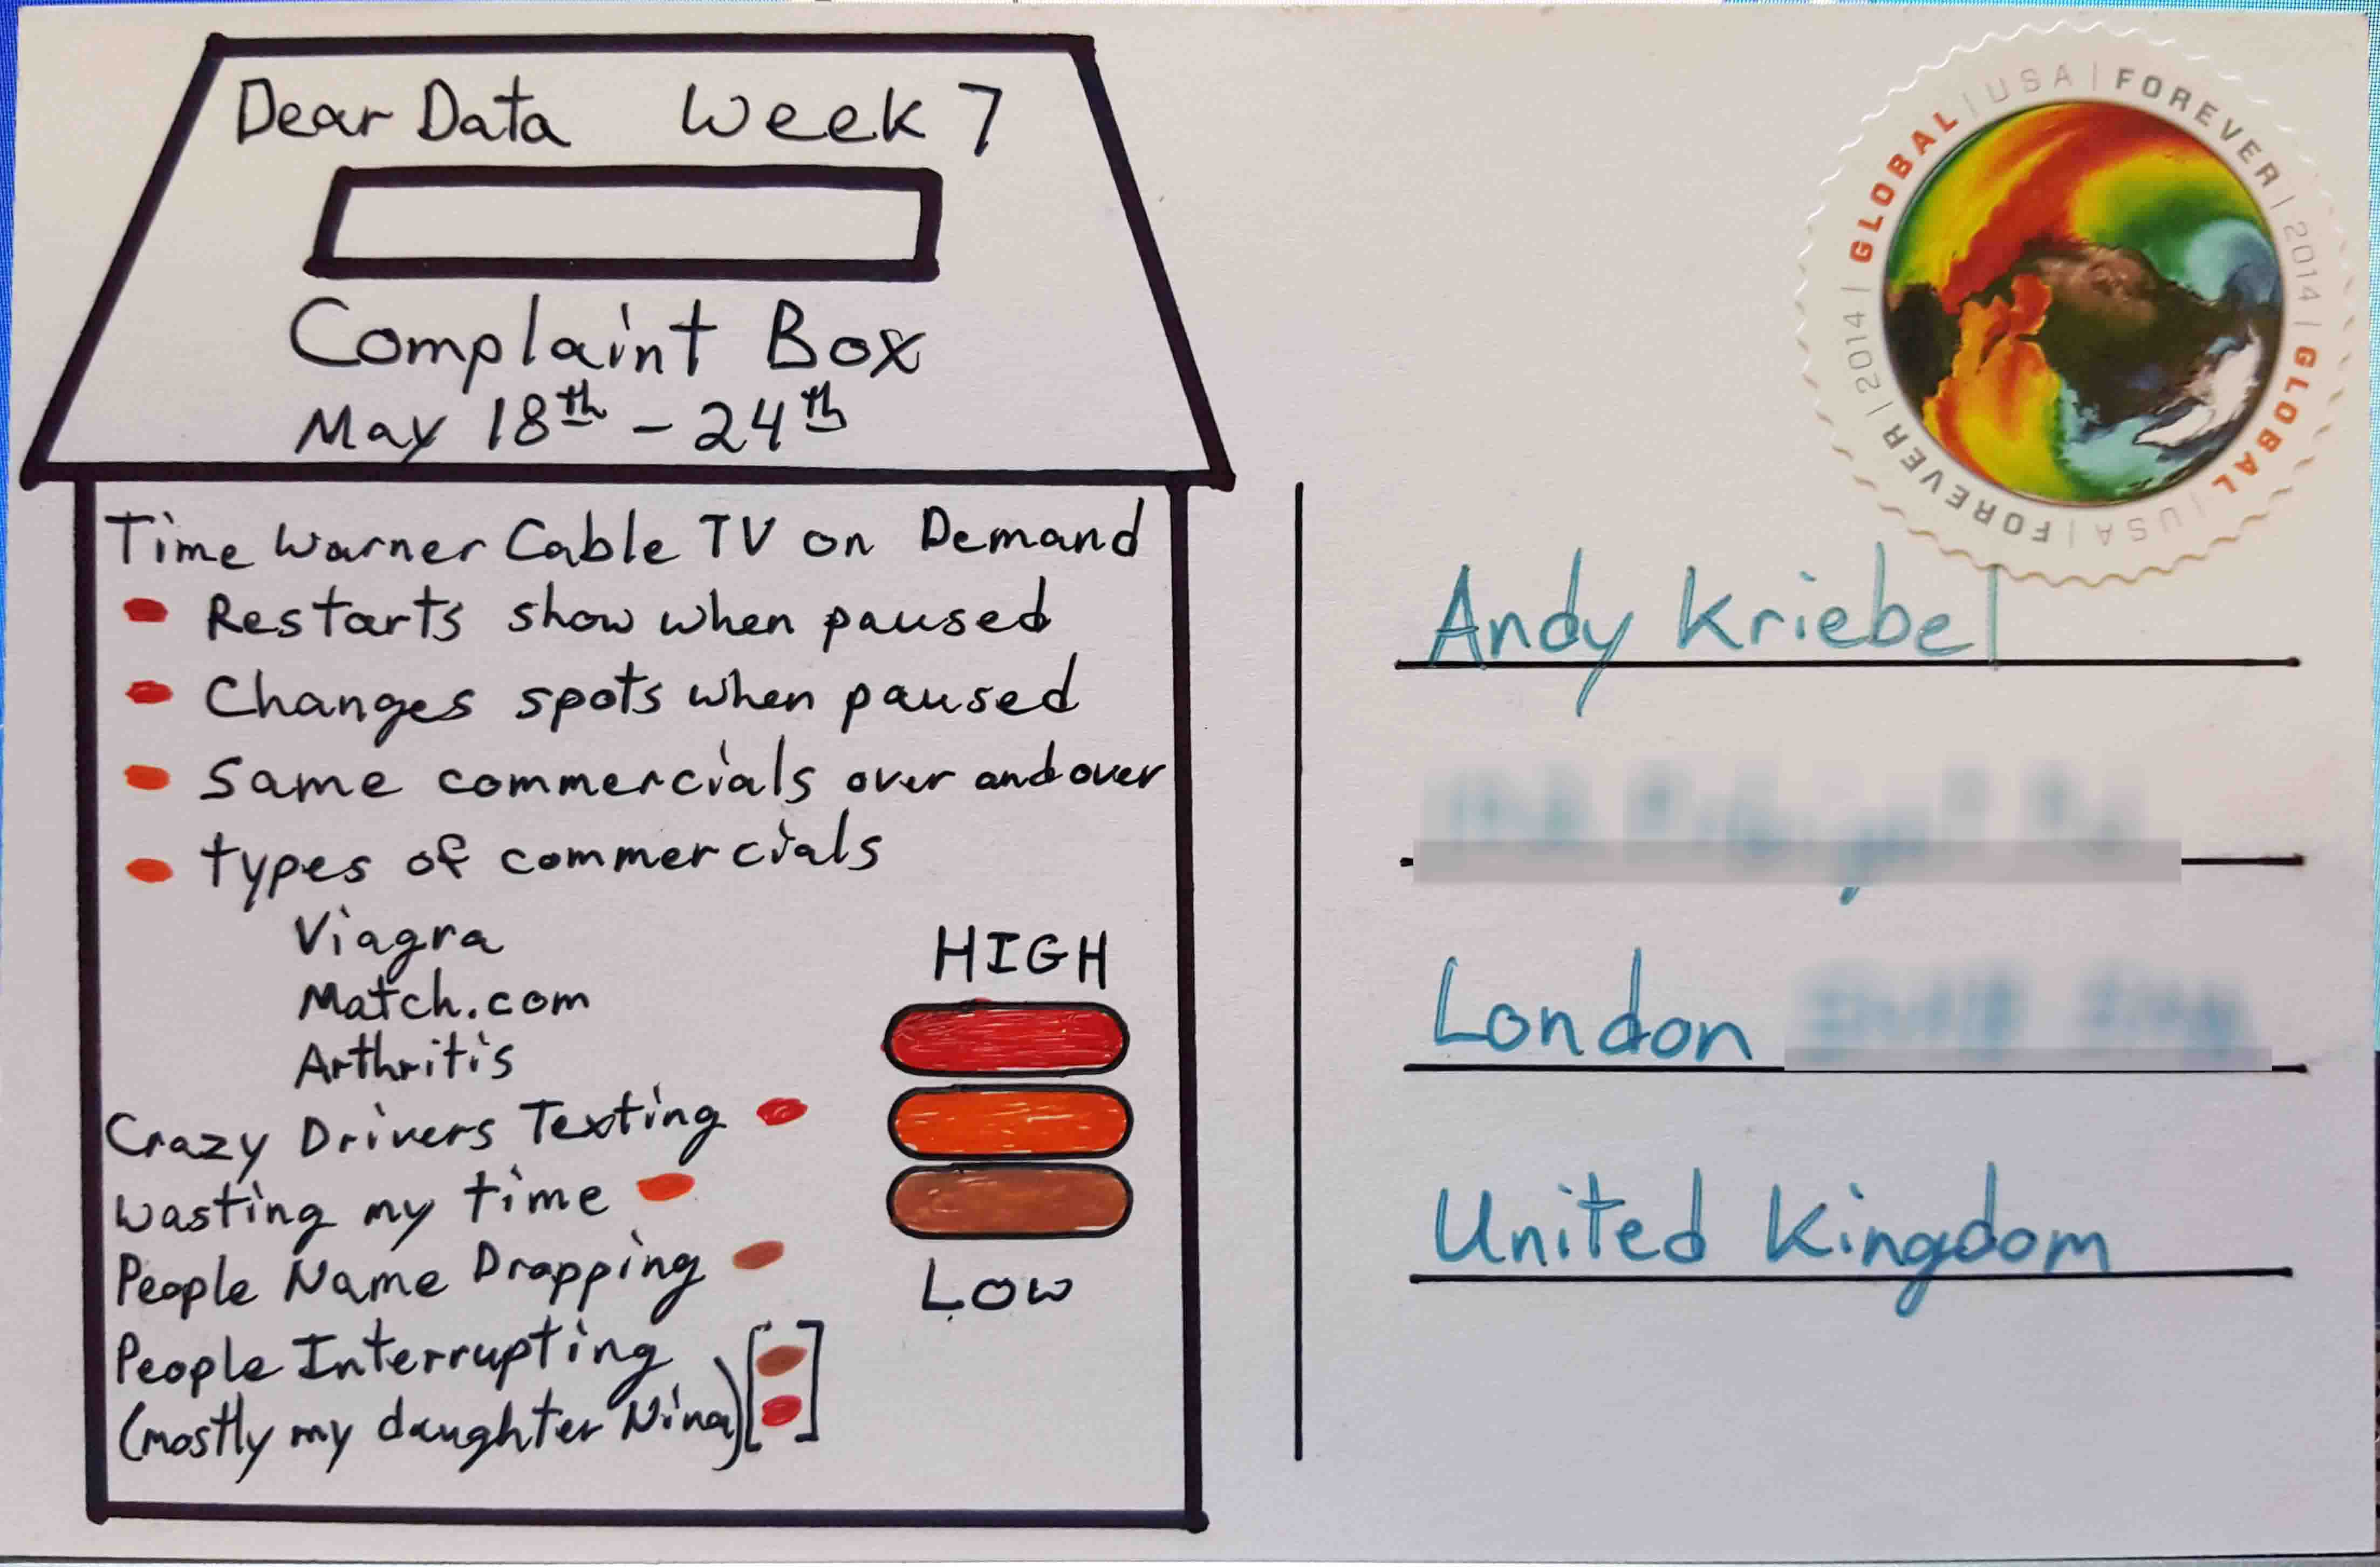 Dear Data Week 7
Complaint Box
May 18th - 24th
Time Warner Cable TV on Demand
Restarts show when paused
Changes spots when paused
Same commercials over and over
types of commercials
Viagra
Match.com
Arthritis
Crazy Drivers Texting
Wasting my time
People Name Dropping
People Interrupting
(mostly my daughter Nina)
HIGH
LOW
GLOBAL | USA | FOREVER | 2014 | GLOBAL | USA | FOREVER | 2014 |
Andy Kriebel
London
United Kingdom